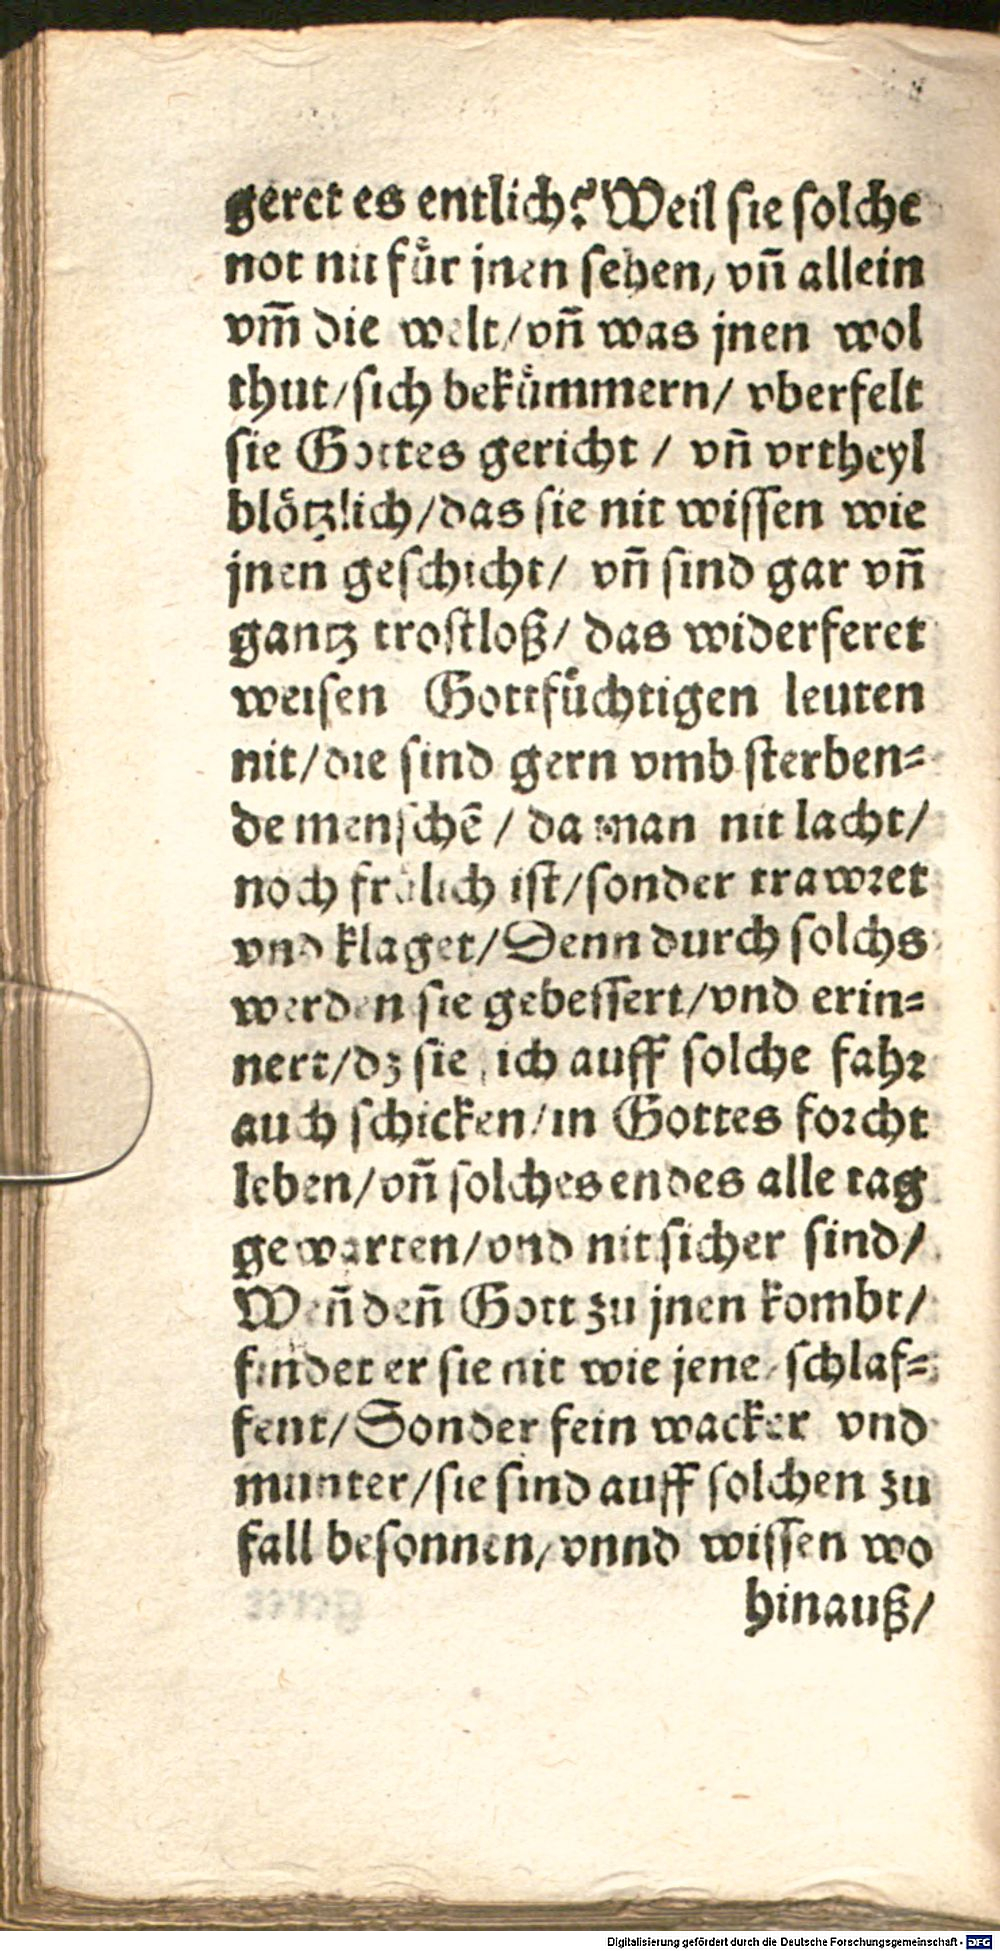 geret es entlich? Weil sie ſolche
not nit fuͤr jnen ſehen/ vñ allein
vm̃ die welt/ vñ was jnen wol
thut/ ſich bekuͤmmern/ vberfelt
ſie Gottes gericht / vñ vrtheyl
bloͤtzlich/ das ſie nit wiſſen wie
jnen geſchicht/ vñ ſind gar vñ
gantz troſtloß/ das widerferet
weiſen Gottfuͤchtigen leuten
nit/ die ſind gern vmb ſterben=
de menſchẽ / da man nit lacht/
noch froͤlich iſt/ ſonder trawꝛet
vnd klaget/ Denn durch ſolchs
werden ſie gebeſſert/ vnd erin=
nert/ dz ſie ſich auff ſolche fahꝛ
auch ſchicken/ in Gottes foꝛcht
leben/ vñ ſolches endes alle tag
gewarten/ vnd nit ſicher ſind/
Weñ deñ Gott zu jnen kombt/
findet er ſie nit wie jene ſchlaf=
fent/ Sonder fein wacker vnd
munter/ ſie ſind auff ſolchen zu
fall beſonnen/ vnnd wiſſen wo
hinauß/
Digitalisierung gefördert durch die Deutsche Forschungsgemeinschaft - DFG